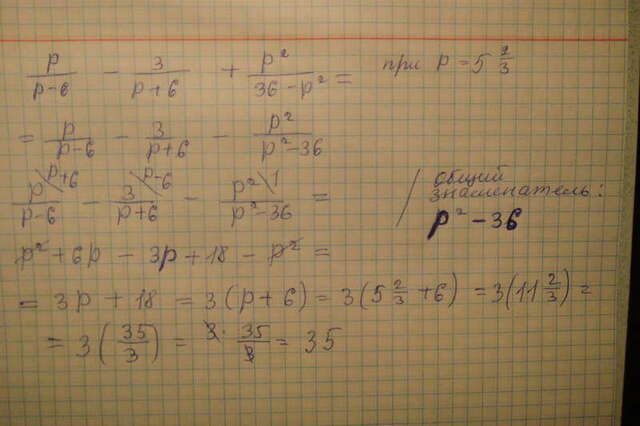 p/(p-6) - 3/(p+6) + p²/(36-p²) = при p = 5 2/3
= p/(p-6) - 3/(p+6) - p²/(p²-36)
p\p+6/(p-6) - 3\p-6/(p+6) - p²\1/(p²-36) = / общий знаменатель: p²-36
p² + 6p - 3p + 18 - p² =
= 3p + 18 = 3(p+6) = 3(5 2/3 + 6) = 3(11 2/3) =
= 3(35/3) = 3 · 35/3 = 35